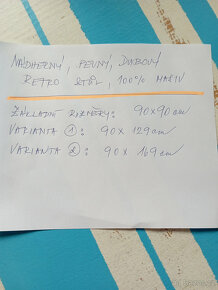 NÁDHERNÝ, PEVNÝ, DUBOVÝ
RETRO STŮL, 100% MASIV
ZÁKLADNÍ ROZMĚRY: 90x90 cm
VARIANTA 1: 90 x 129 cm
VARIANTA 2: 90 x 169 cm